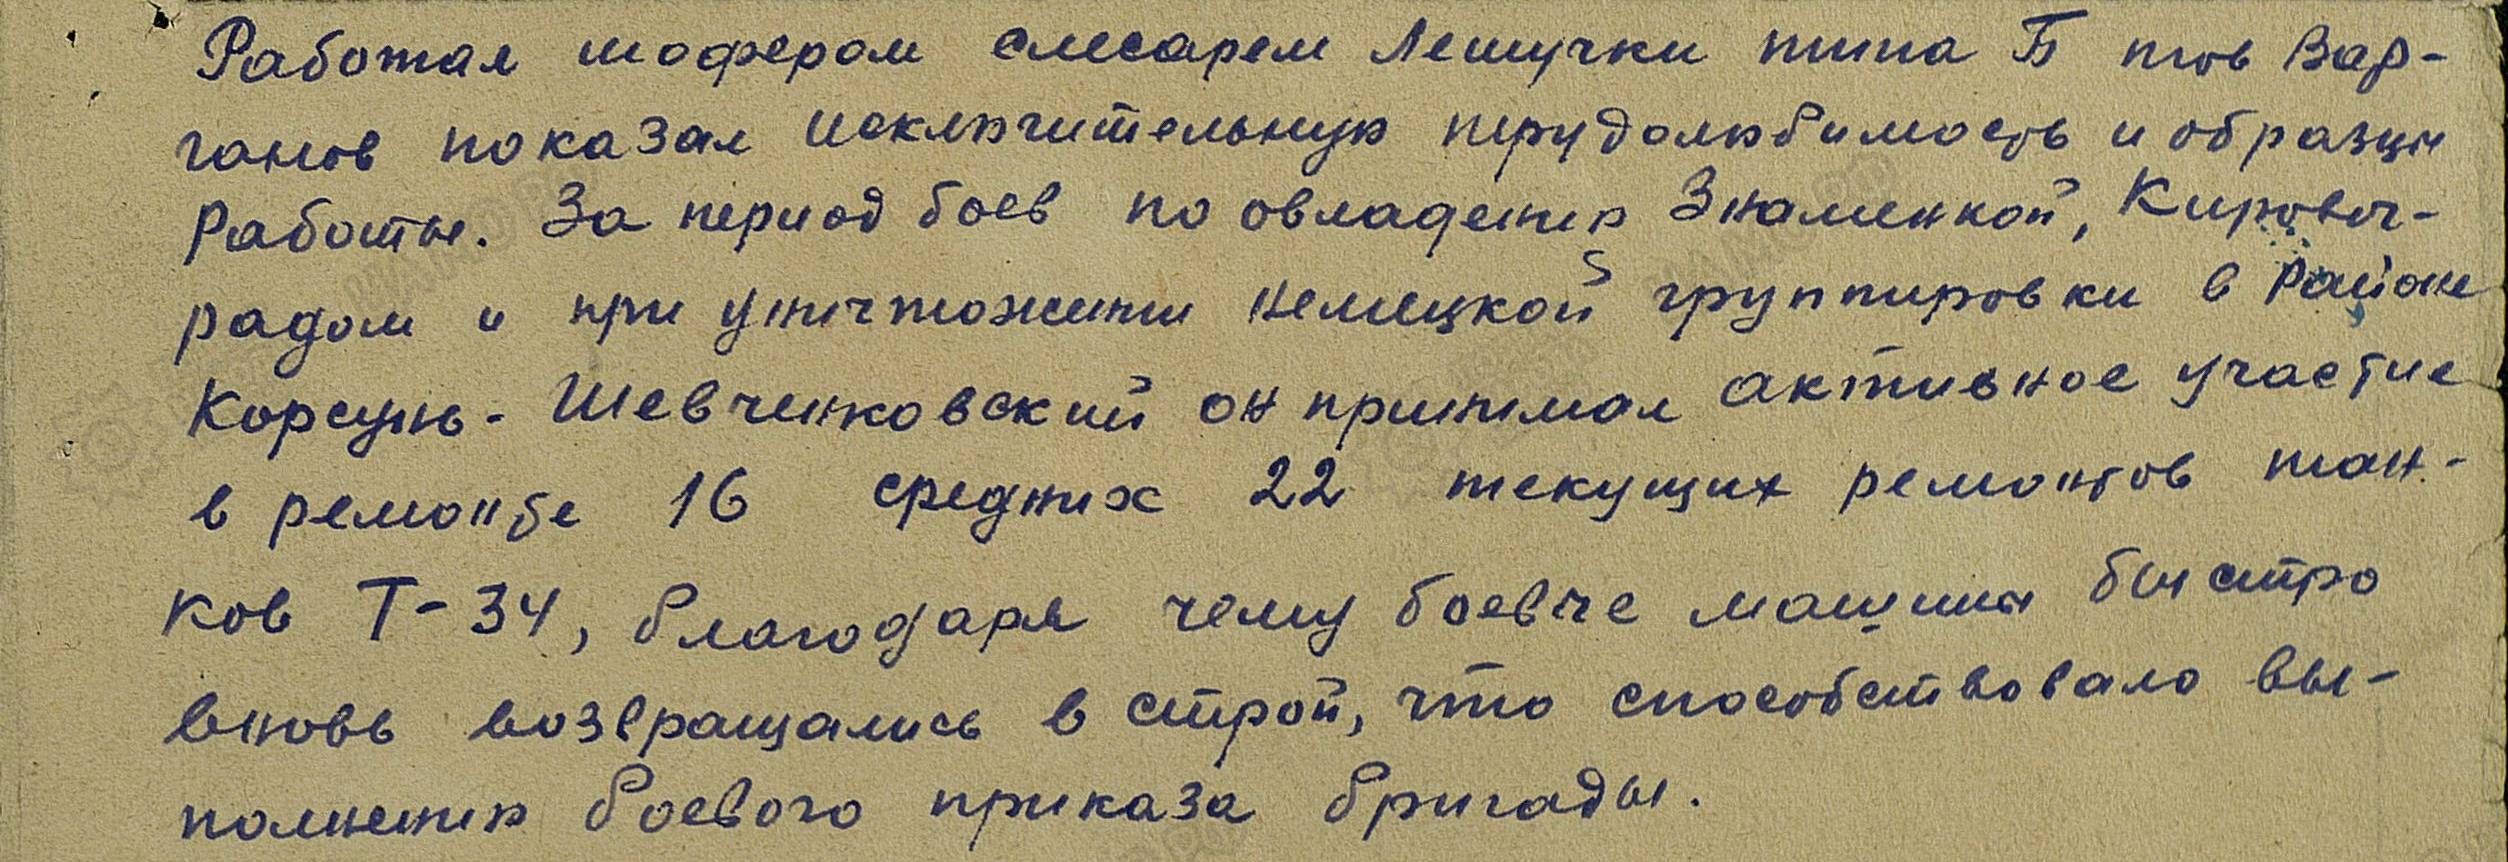 Работая шофером слесарем Летучки типа Б тов Вар-
ганов показал исключительную трудолюбимость и образцы
работы. За период боев по овладению Знаменкой, Кировог-
радом и при уничтожении немецкой группировки в районе
Корсунь-Шевченковский он принимал активное участие
в ремонте 16 средних 22 текущих ремонтов тан-
ков Т-34, благодаря чему боевые машины быстро
вновь возвращались в строй, что способствовало вы-
полнению боевого приказа бригады.